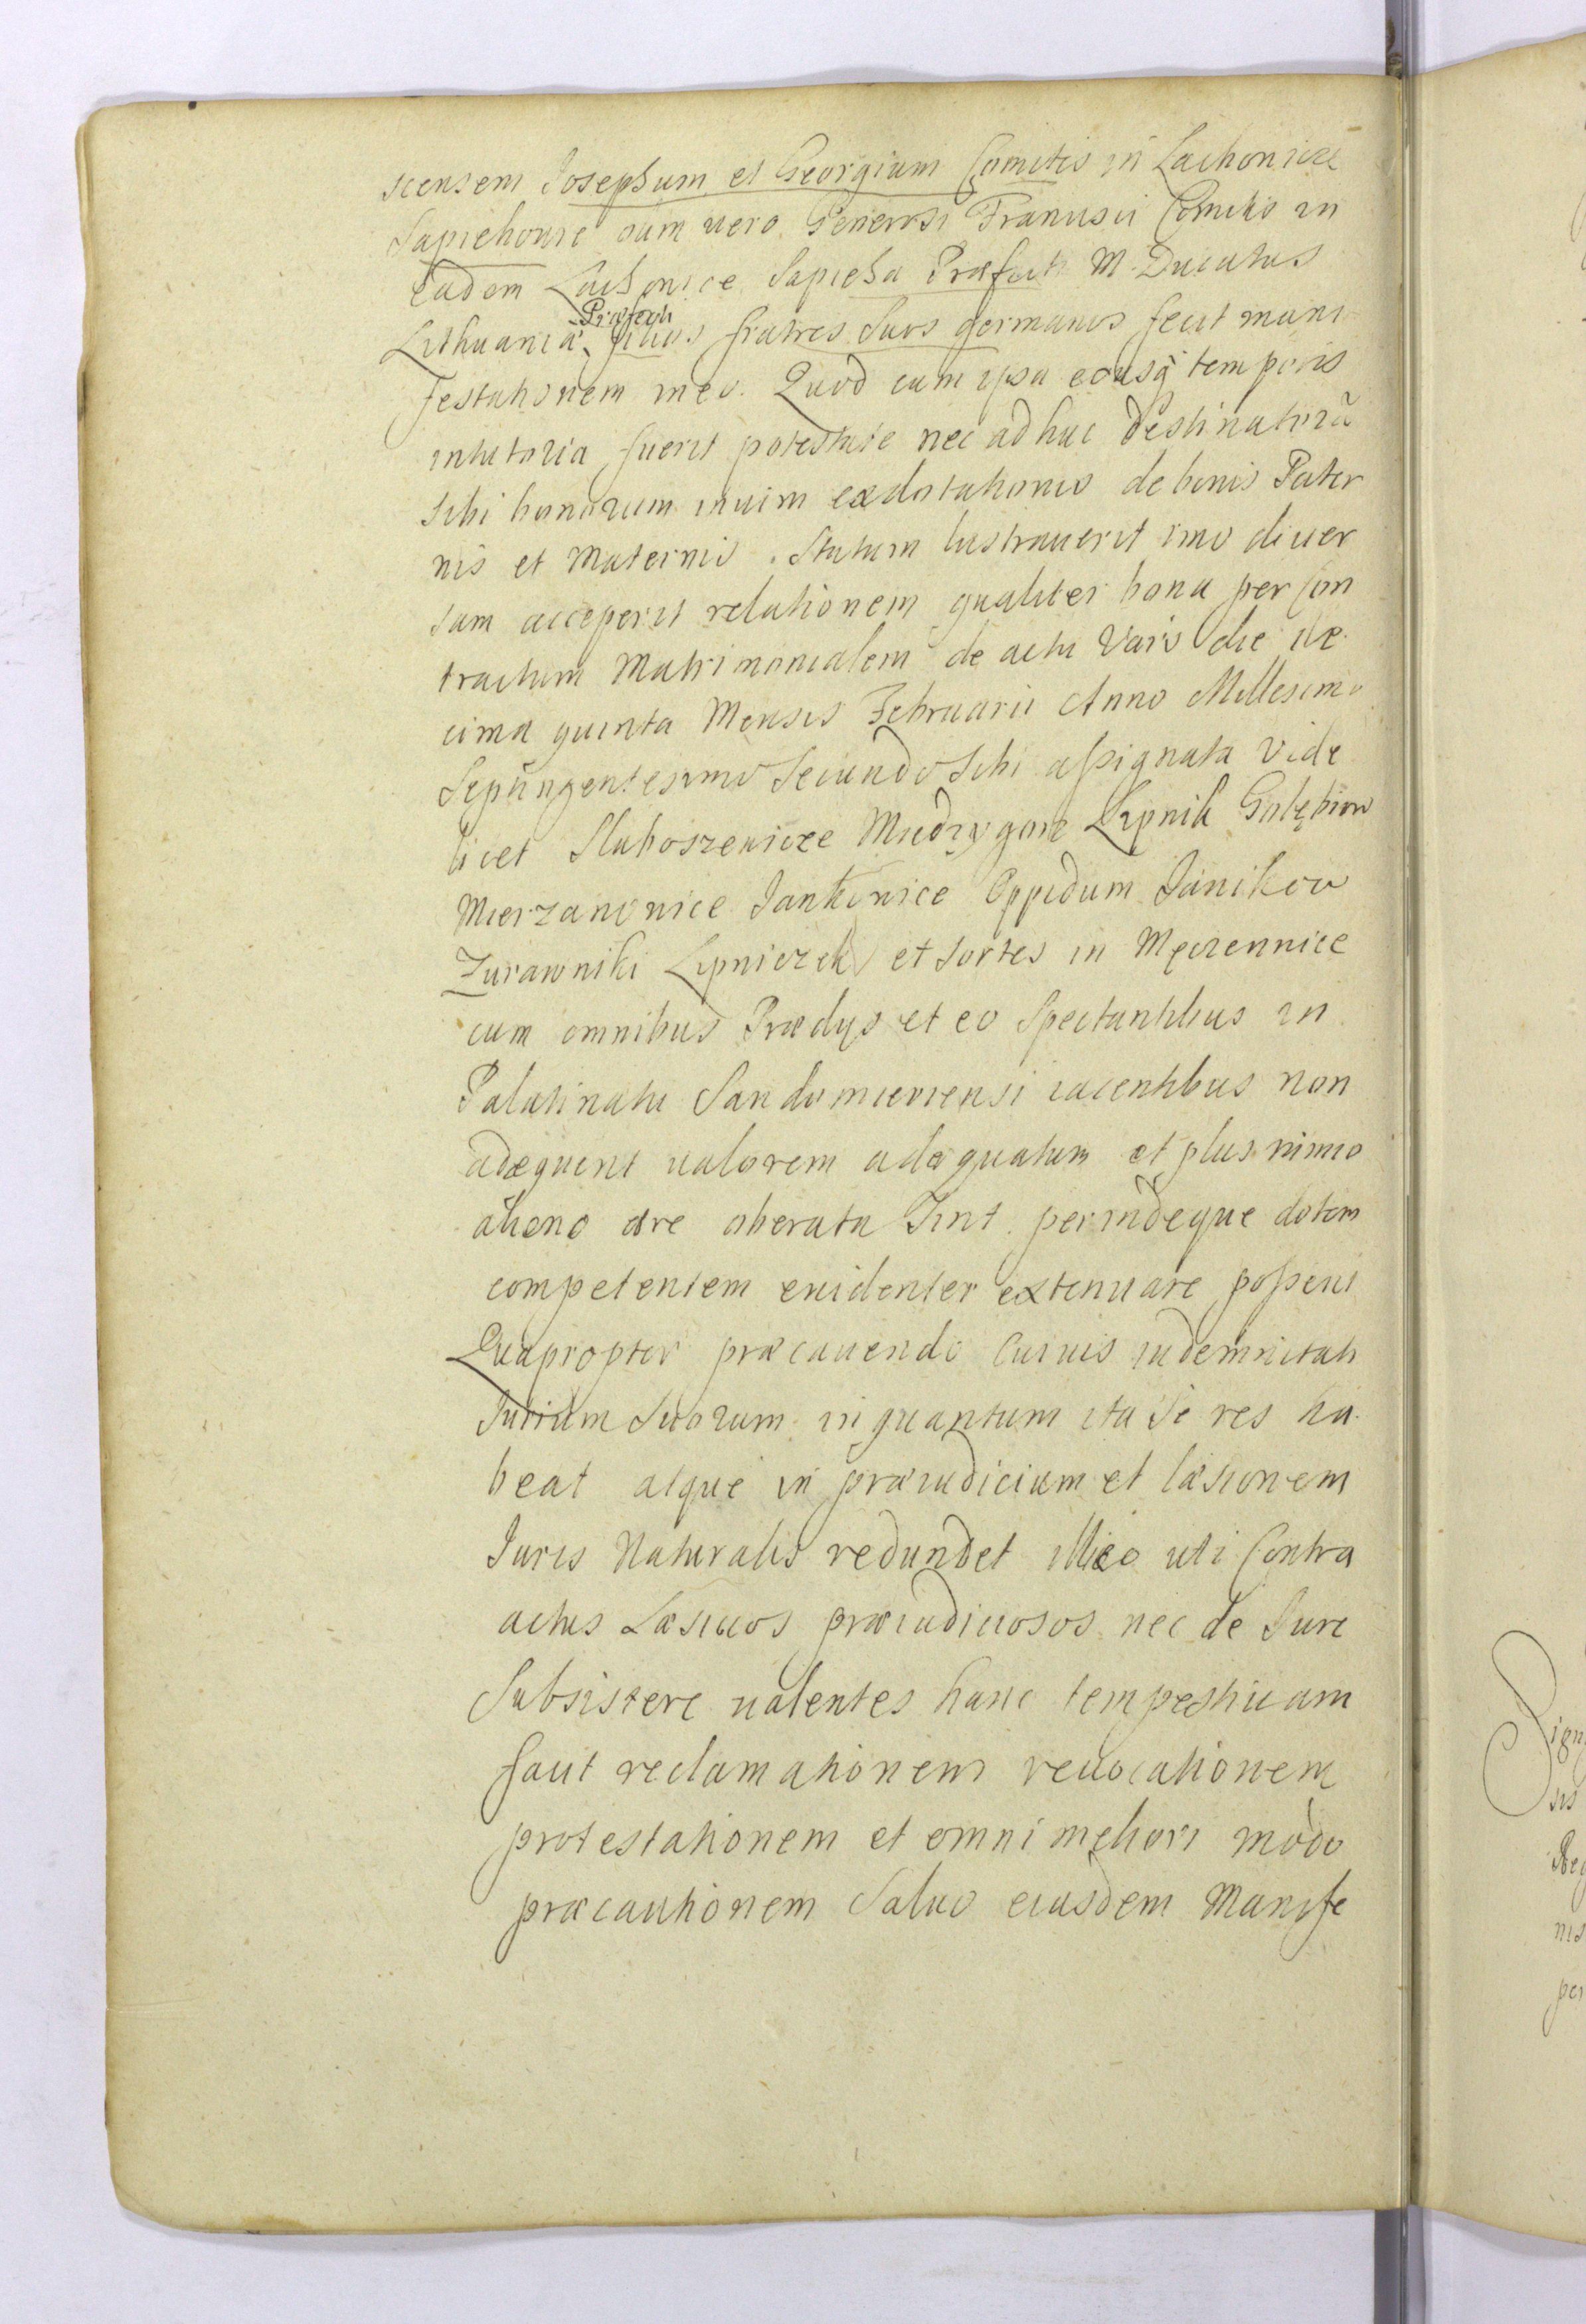 scensem Josephum et Georgium Comitis in Lachowicze
Sapiehowie oūm uero Generosi Francisci Comitis in
eadem Lachowice Sapieha Præfecti M. Ducatus
Lithuaniæ Præfecti filios fratres Suos germanos fecit mani
festationem in eo. Quod cum ipsa eousq temporis
in tutoria fuerit potestate nec ad huc destinatorū
sibi bonorum in uim exdotationis de bonis Pater
nis et Maternis. Statum lustrauerit imo diuer
sam acceperit relationem qualiter bona per Con
tractum Matrimonialem de actu Vars die de
cima quinta Mensis Februarii Anno Millesimo
Septingentesimo Secundo Sibi assignata Vide
licet Słuboszewicze Międzygorz Lipnik Gołębiow
Mierzanowice Jankowice Oppidum Janikow
Zurawniki Lipniczek et sortes in Męczennice
cum omnibus Prædys et eo Spectantibus in
Palatinatu Sandomiriensi iacentibus non
adæquent ualorem adæquatum et plus nimio
alieno ære oberata Sint perindeque dotem
competentem euidenter extenuare possent
Quapropter præcauendo Cuiuis indemnitati
Jurium Suorum in quantum ita Se res ha
beat atque in præiudicium et læsionem
Juris Naturalis redundet illico uti Contra
actus Læsiuos præiudiciosos nec de Jure
Subsistere ualentes hanc tempestiuam
facit reclamationem reuocationem
protestationem et omni meliori modo
præcautionem Saluo eiusdem Manife